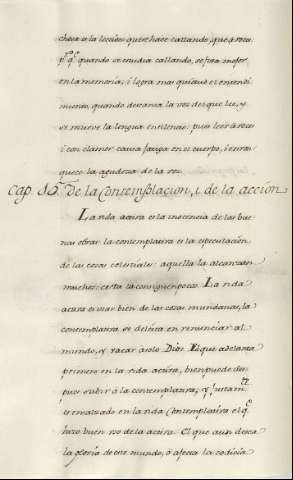 chosa es la leccion que se hace callando, que à voca
pq̃ quando se estudia callando, se fixa mejor
en la memoria; i logra mas quietud el entendi
miento, quando descansa la voz del que lee, y
se mueve la lengua en silencio: pues leer à voces
i con clamor causa fatiga en el cuerpo, i enron
quece la agudeza de la voz.
Cap. 15. De la Contemplacion, i de la accion
La vida activa es la inocencia de las bue
nas obras: la contemplativa es la especulación
de las cosas celestiales: aquella la alcanzan
muchos: esta la consiguen pocos. La vida
activa es usar bien de las cosas mundanas, la
contemplativa se deleita en renunciar al
mundo, y vacar à solo Dios. El que adelanta
primero en la vida activa, bien puede des
pues subir à la contemplativa, y justam.te
es ensalzado en la vida Contemplativa el q.e
hizo buen uso de la activa. El que aun desea
la gloria de este mundo, ò afecta la codicia